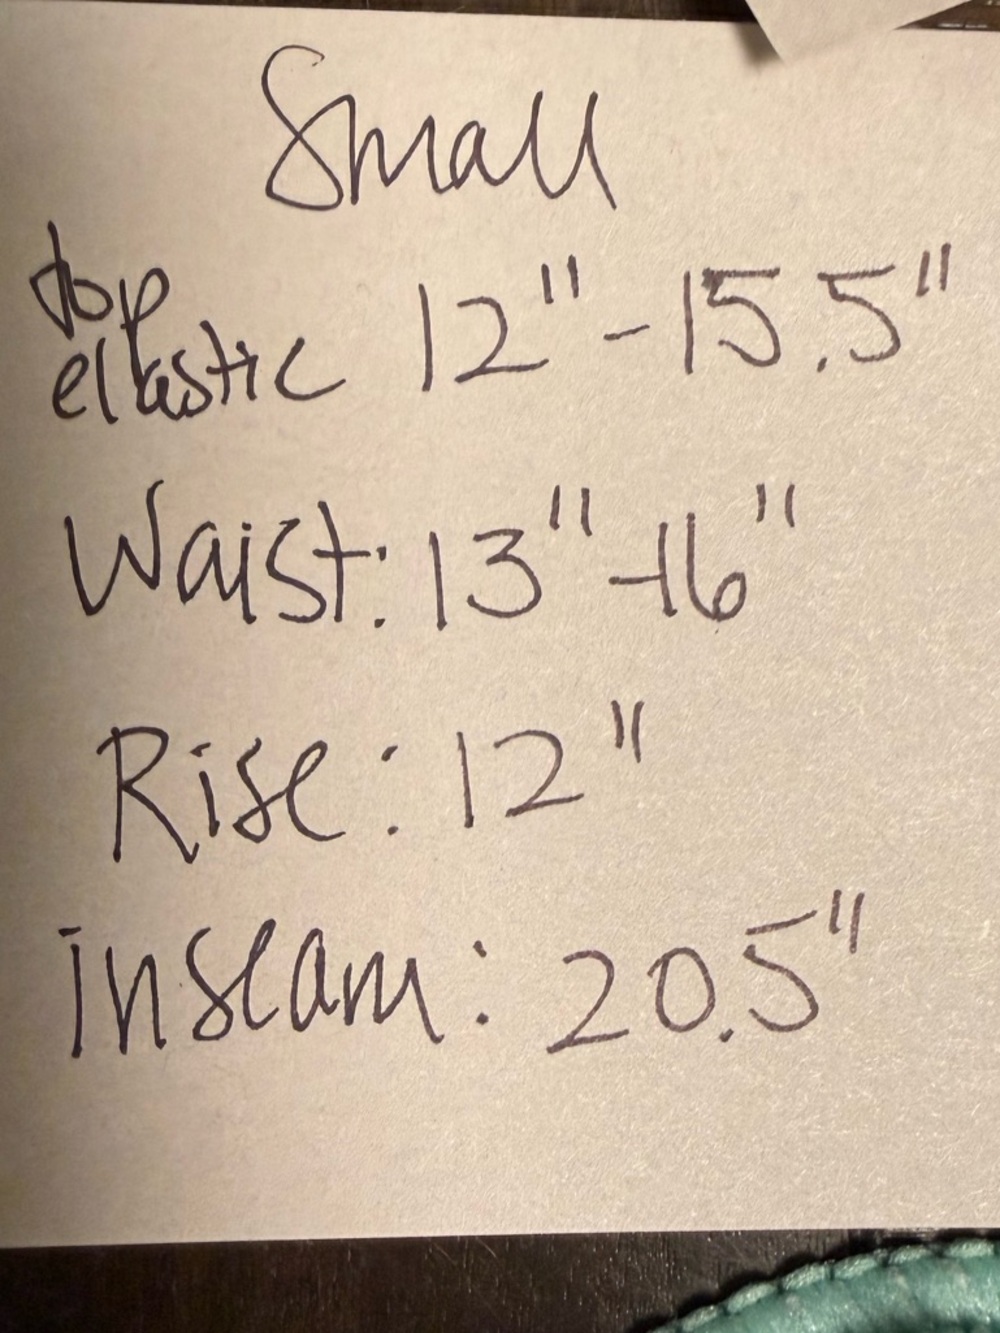 Small
top
elastic 12" - 15.5"
Waist: 13" - 16"
Rise: 12"
inseam: 20.5"